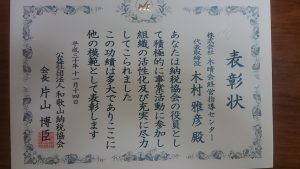 表彰状
株式会社 木晴会経営指導センター
代表取締役 木村 雅彦 殿
あなたは納税協会の役員とし
て積極的に事業活動に参加し
組織の活性化及び充実に尽力
してこられました
この功績は多大でありここに
他の模範として表彰します
平成二十年十一月十四日
公益社団法人 和歌山納税協会
会長 片山 博臣